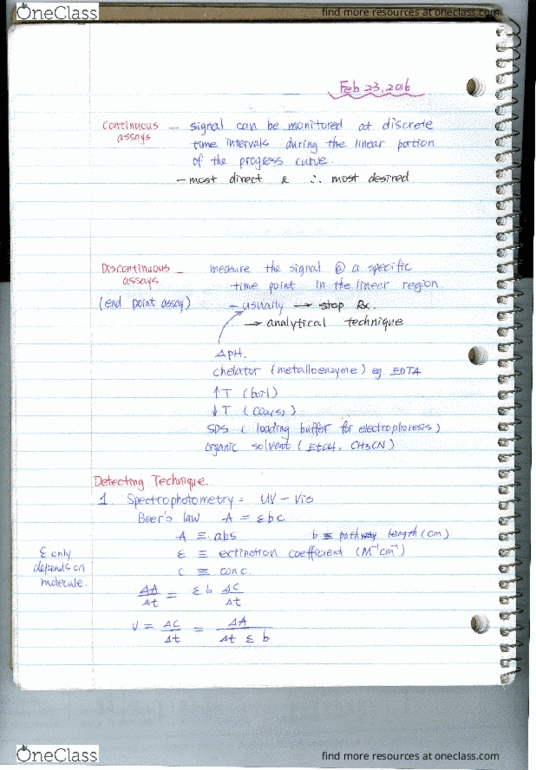 OneClass
find more resources at oneclass.com
Feb 23, 2016
Continuous assays — signal can be monitored at discrete
time intervals during the linear portion
of the progress curve.
— most direct & ∴ most desired
Discontinuous assays — measure the signal @ a specific
(end point assay) time point in the linear region.
— usually → stop Rx.
→ analytical technique
ΔpH.
chelator (metalloenzyme) eg. EDTA
↑T (boil)
↓T
SDS (loading buffer for electrophoresis)
organic solvent (EtOH, CH3CN)
Detecting Technique.
1. Spectrophotometry = UV-Vis
Beer's law A = εbc
A ≡ abs b ≡ length (cm)
ε ≡ extinction coefficient (M⁻¹cm⁻¹)
c ≡ conc.
ε only
depends on
molecule.
ΔA/Δt = εb ΔC/Δt
V = ΔC/Δt = ΔA/Δt ε b
OneClass
find more resources at oneclass.com